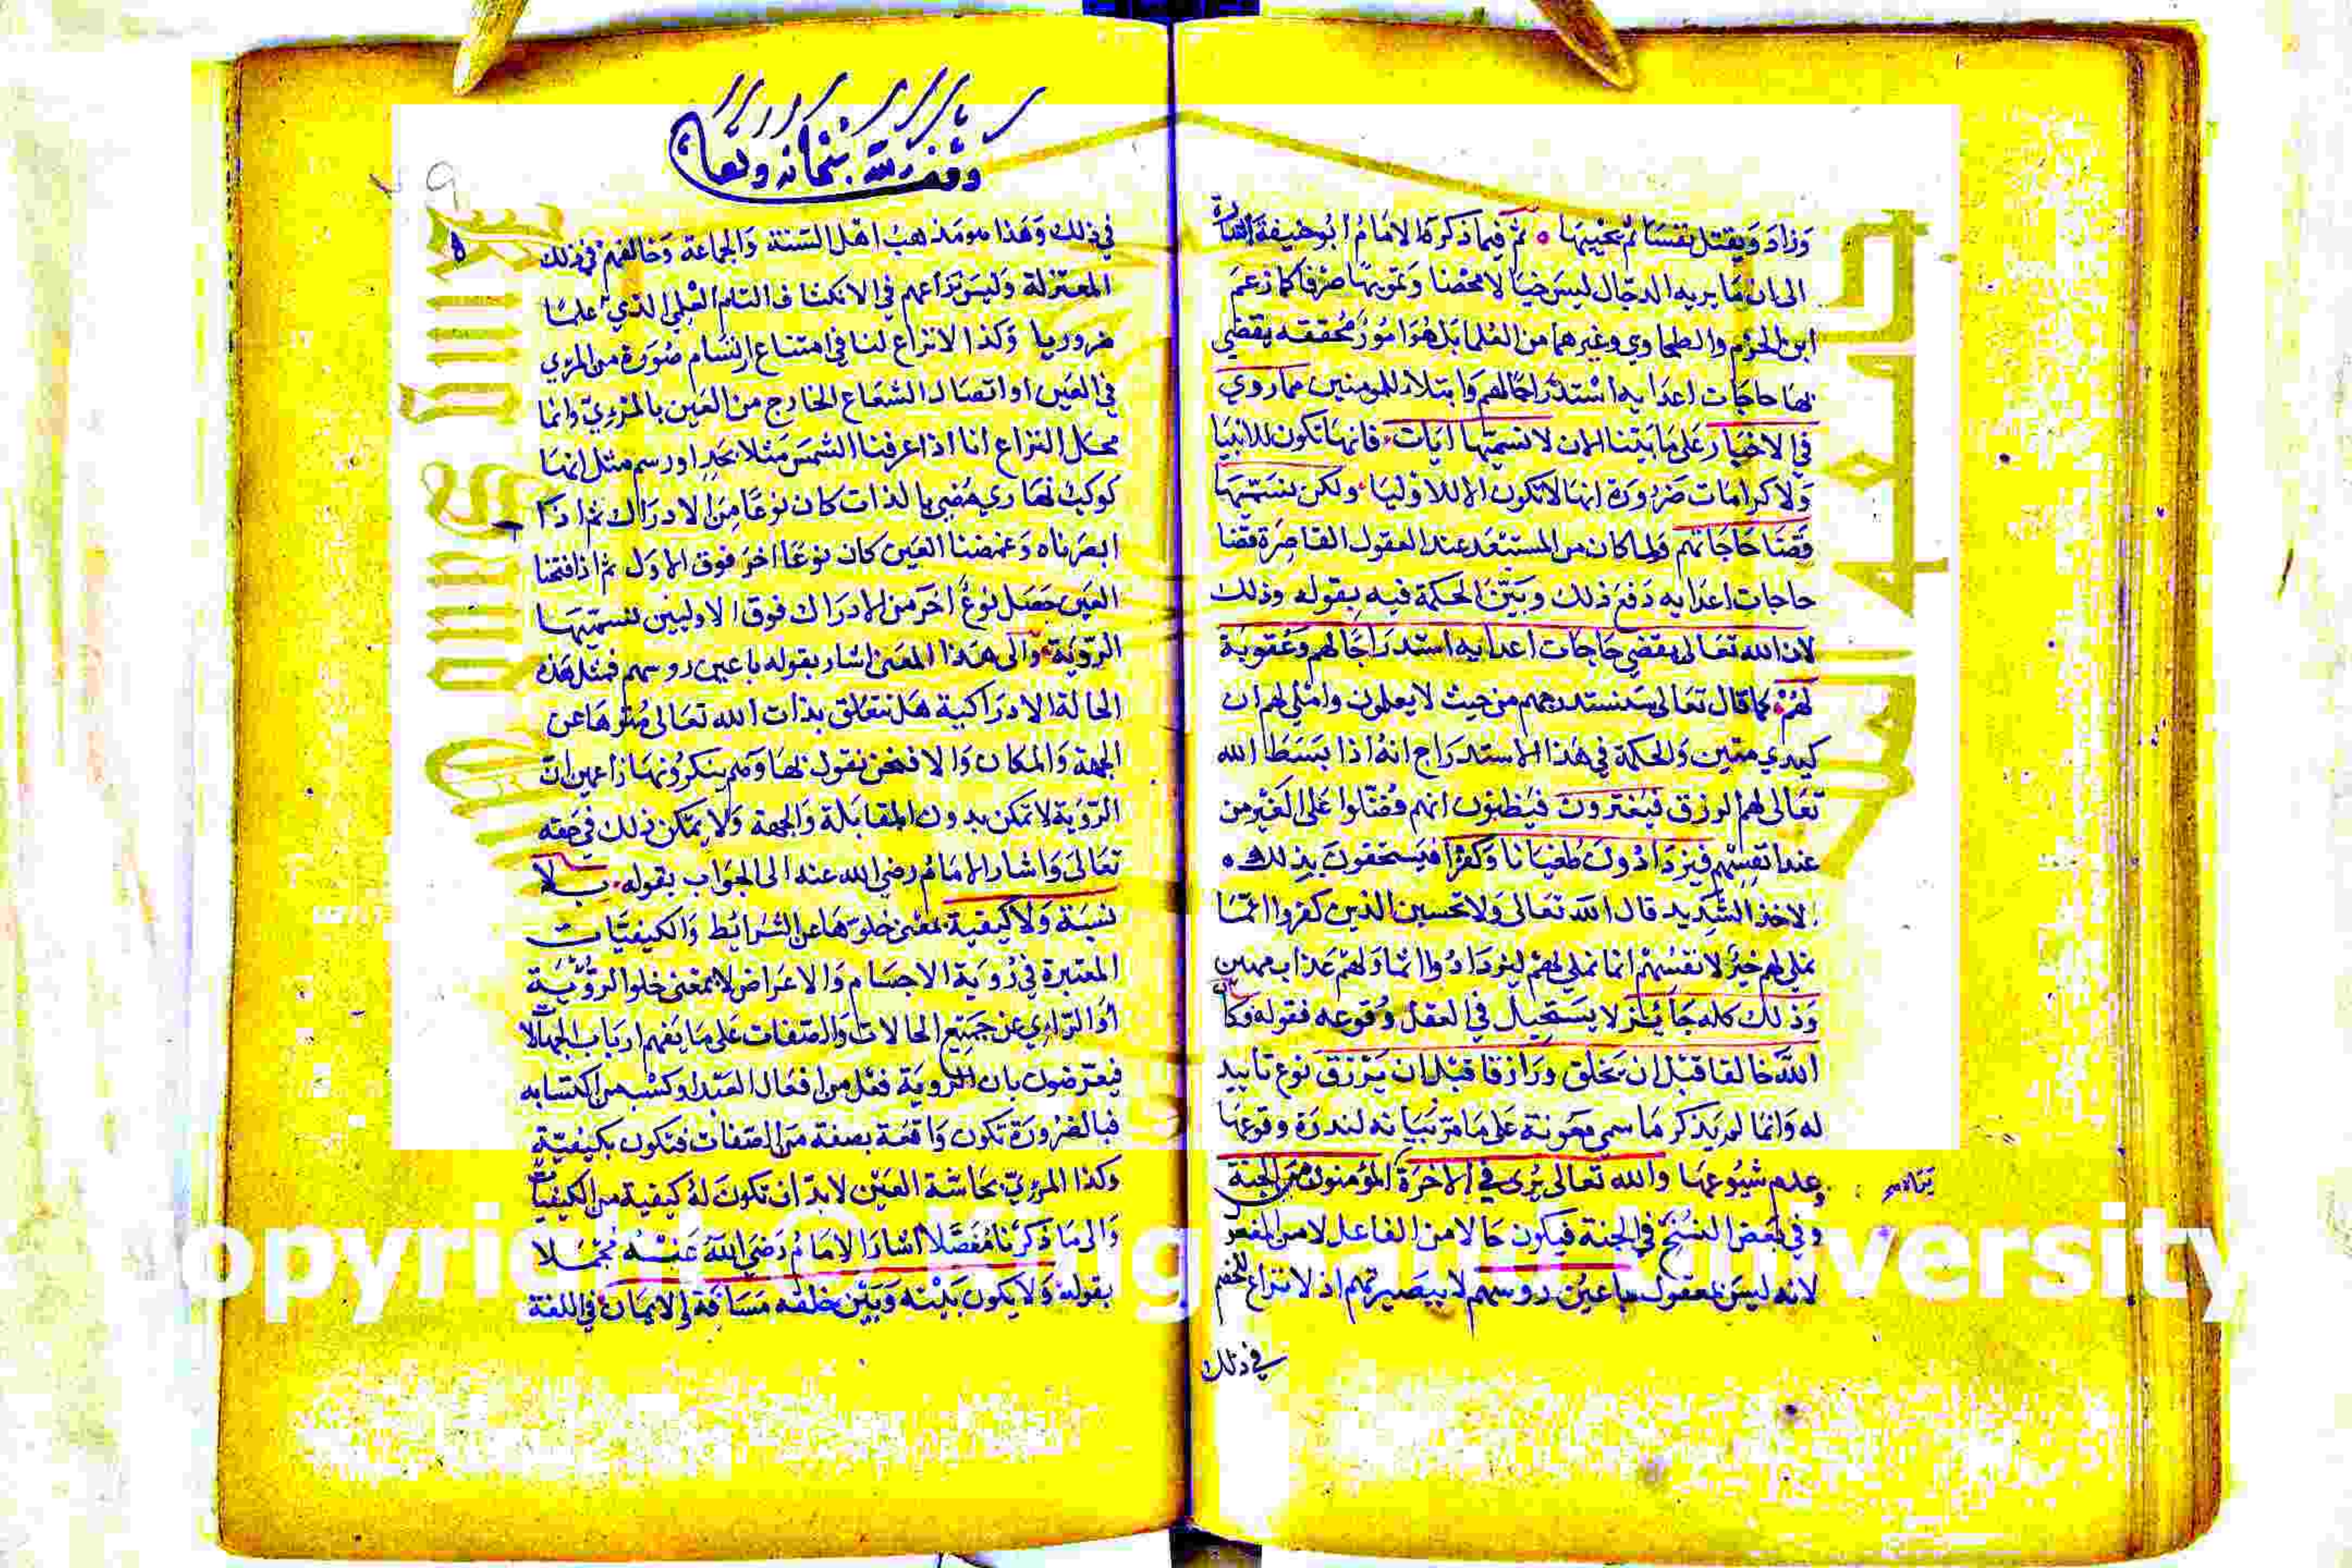 وزاد ويقتل نفسا ثم يحييها ثم فيما ذكره الامام ابو حنيفة اشارة
الى ان ما يريه الدجال ليس خيالا محضا وتمويها صرفا كما زعم
ابن الحزم والطحاوي وغيرهما من العلما بل هو امور محققه يقضي
بها حاجات اعدايه استدراجا لهم وابتلاء للمومنين مما روي
في الاخبار على ما بيتنا الان لا نسميها ايات فانها تكون للانبيا
ولا كرامات ضرورة انها لا تكون الا للاوليا ولكن نسميها
قضا حاجاتهم ولما كان من المستبعد عند العقول القاصرة قضا
حاجات اعدايه دفع ذلك وبين الحكمة فيه بقوله وذلك
لان الله تعالى يقضي حاجات اعدايه استدراجا لهم وعقوبة
لهم كما قال تعالى سنستدرجهم من حيث لا يعلمون واملي لهم ان
كيدي متين والحكمة في هذا الاستدراج انه اذا بسط الله
تعالى لهم الرزق فيغترون فيظنون انهم فضلوا على الغير من
عند انفسهم فيزدادون طغيانا وكفرا فيستحقون بذلك
لاخذ الشديد قال الله تعالى ولا تحسبن الذين كفروا انما
نملي لهم خير لانفسهم انما نملي لهم ليزدادوا اثما ولهم عذاب مهين
وذلك كله جائز لا يستحيل في العقل وقوعه فقوله وكان
الله خالقا قبل ان يخلق ورازقا قبل ان يرزق نوع تاييد
له وانما لم يذكر ما سمي معونة على ما مر بيانه لندرة وقوعها
وعدم شيوعها والله تعالى يرى في الاخرة المؤمنون من الجنة
وفي بعض النسخ في الجنة فيكون حالا من الفاعل لا من المفعول
لانه ليس بمعقول باعين روسهم لا ببصيرتهم اذ لا نزاع للخصم
في ذلك
وقف لله سبحانه وتعالى
في ذلك وهذا هو مذهب اهل السنة والجماعة وخالفهم في ذلك
المعتزلة وليس نزاعهم في الانكشاف التام العلمي الذي علما
ضروريا وكذا لا نزاع لنا في امتناع ارتسام صورة من المرئي
في العين او اتصال الشعاع الخارج من العين بالمرئي وانما
محل النزاع انا اذا عرفنا الشمس مثلا بحد او رسم مثل انها
كوكب نهاري مضيي بالذات كان نوعا من الادراك ثم اذا
ابصرناه وغمضنا العين كان نوعا اخر فوق الاول ثم اذا فتحنا
العين حصل نوع اخر من الادراك فوق الاولين نسميها
الروية والى هذا المعنى اشار بقوله باعين روسهم فمثل هذه
الحالة الادراكية هل تتعلق بذات الله تعالى منزها عن
الجهة والمكان والا فنحن نقول بها وهم ينكرونها زاعمين ان
الروية لا تمكن بدون المقابلة والجهة ولا يمكن ذلك في حقه
تعالى واشار الامام رضي الله عنه الى الجواب بقوله بلا
نسبة ولا كيفية بمعنى خلوها عن الشرائط والكيفيات
المعتبرة في روية الاجسام والاعراض لا بمعنى خلو الروية
او الرائي عن جميع الحالات والصفات على ما يفهم ارباب الجهالا
فيعترضون بان الروية فعل من افعال العبد او كسب من اكتسابه
فبالضرورة تكون واقعة بصفة من الصفات فتكون بكيفية
وكذا المرئي بحاسة العين لا بد ان تكون له كيفية من الكيفيات
والى ما ذكرنا مفصلا اشار الامام رضي الله عنه مجملا
بقوله ولا يكون بينه وبين خلقه مسافة الايمان في اللغة
Copyright © King Saud University